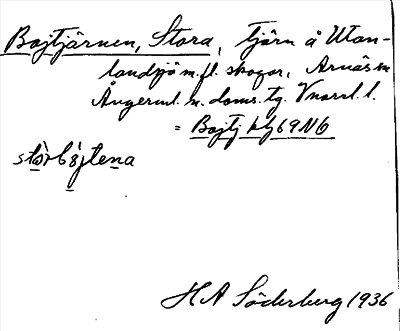 Bojtjärnen, Stora, tjärn å Utan-
landsjö m.fl. skogar, Arnäs sn
Ångerml. n. doms. tg. Vnorrl. l.
= Bojtj kbl 69 N6
stòrbòjtena
H A Söderberg 1936